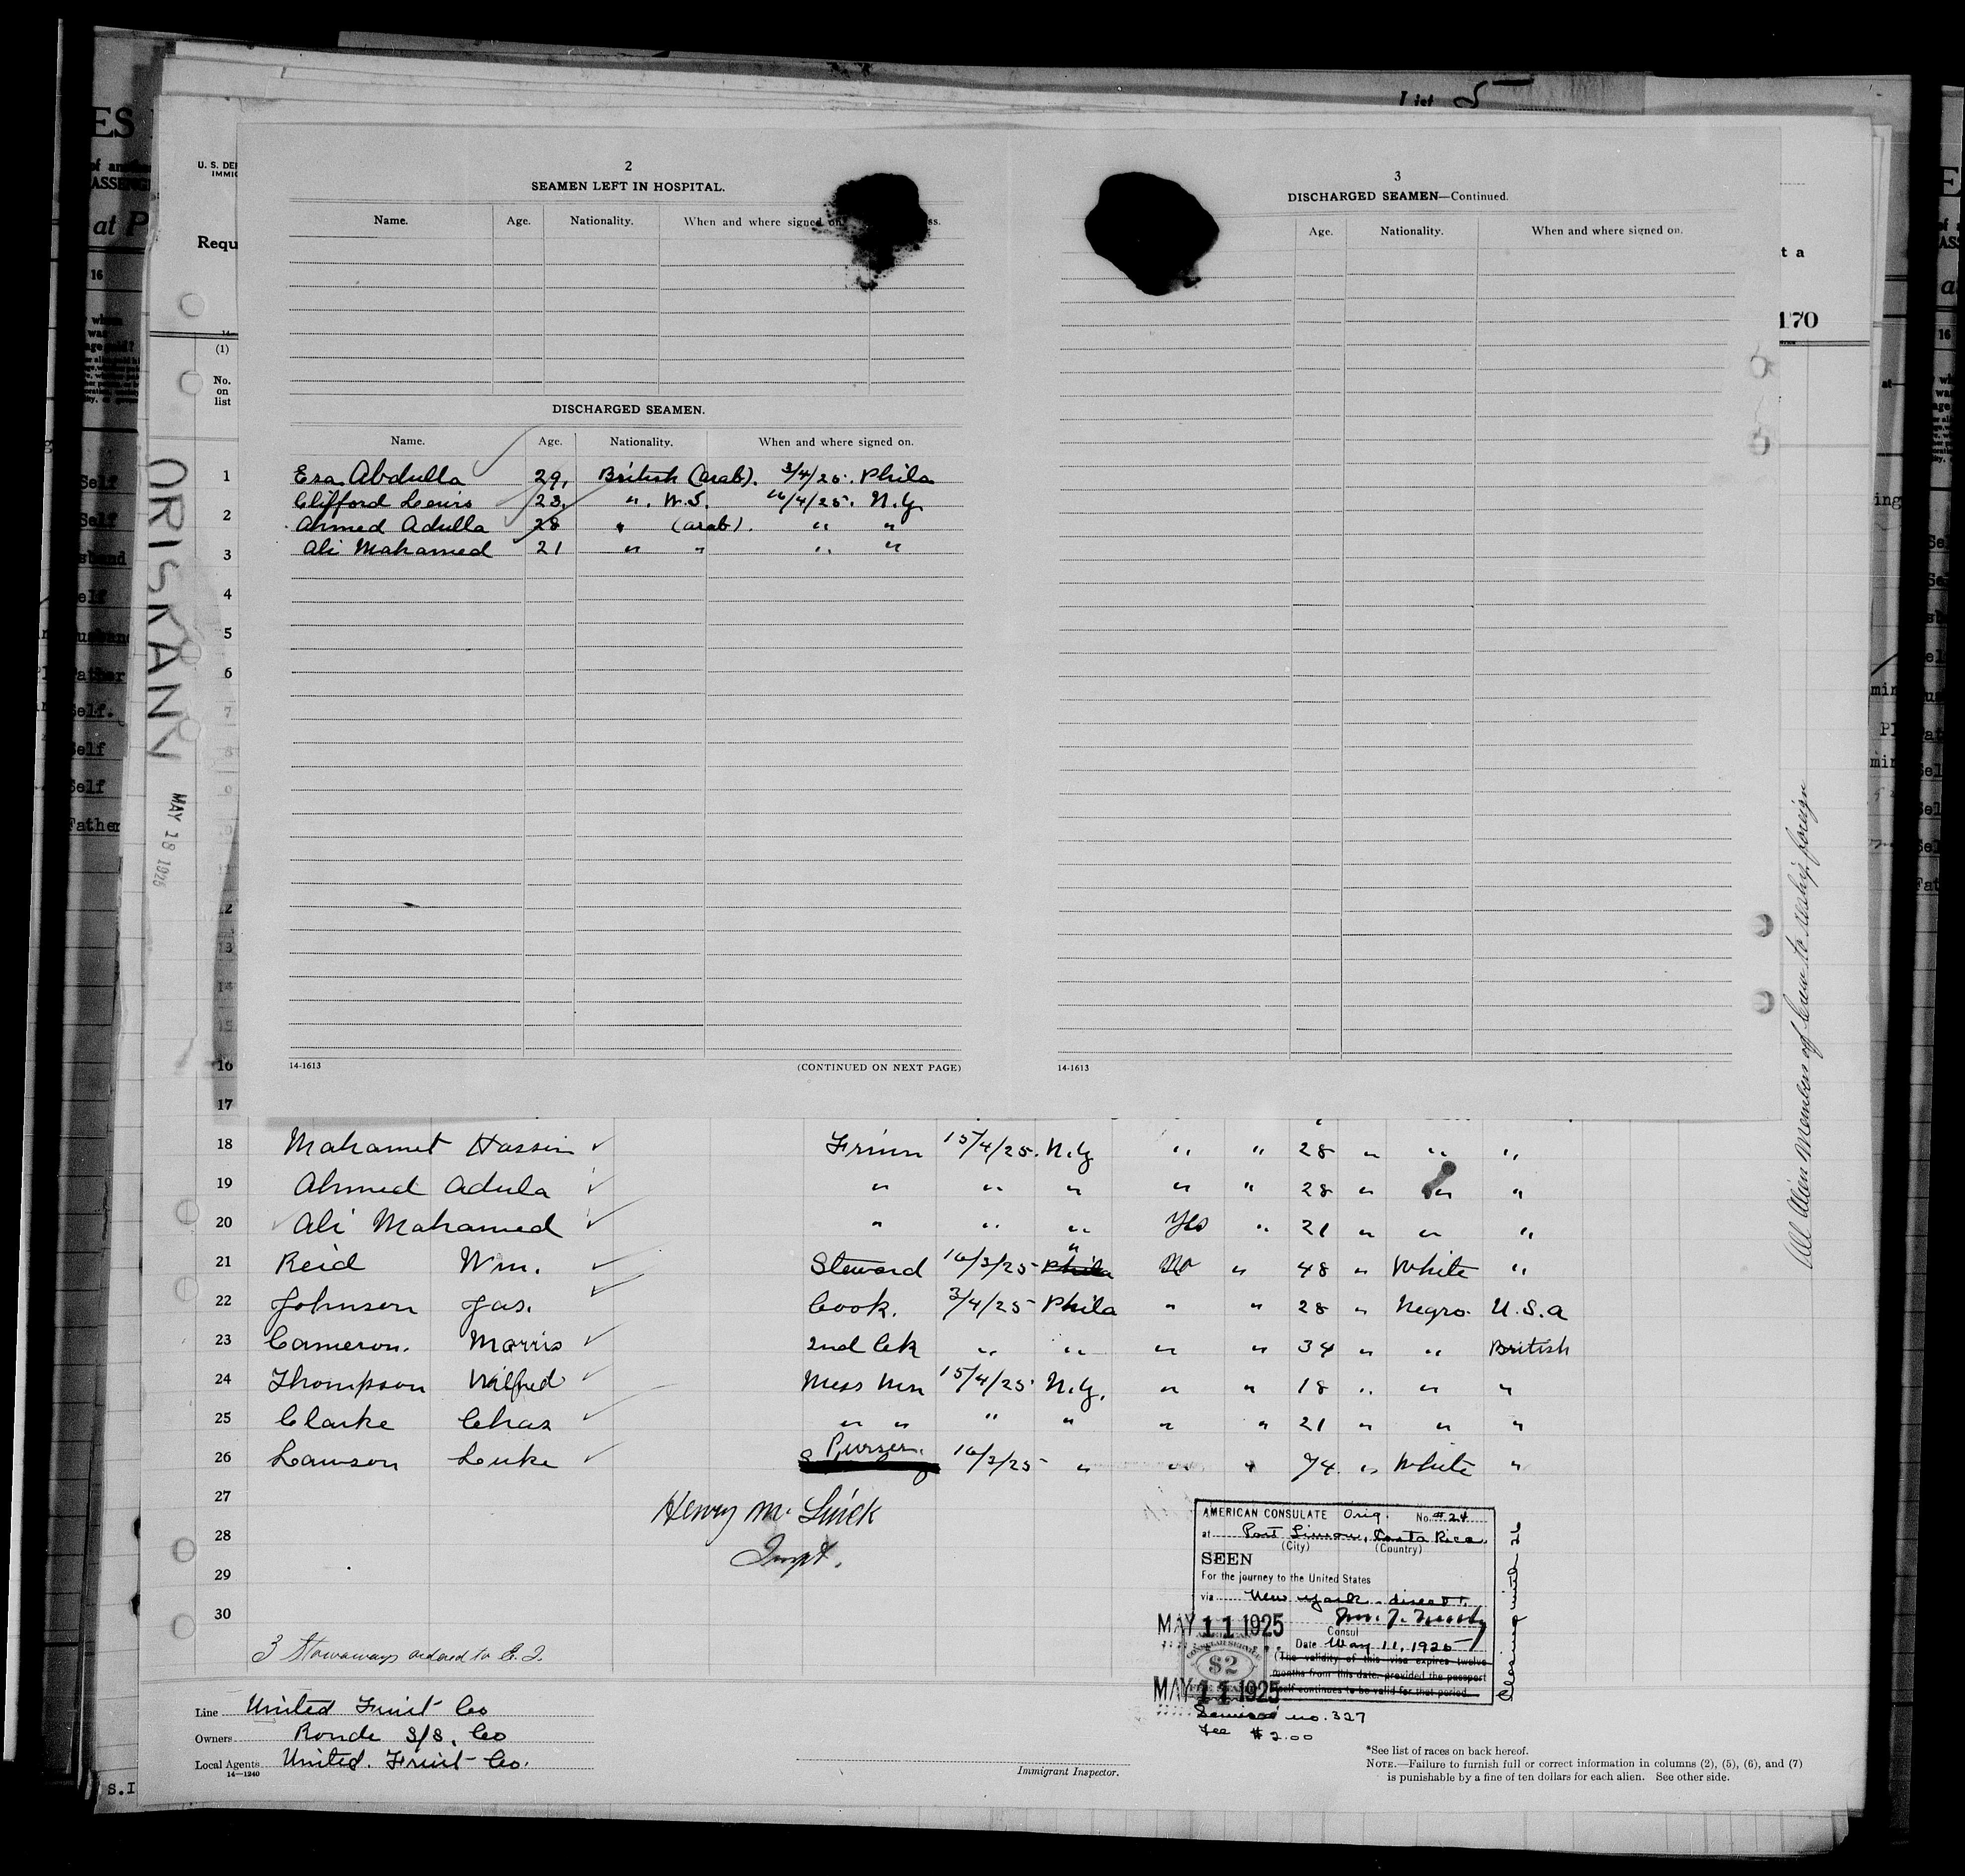 List 5
2
SEAMEN LEFT IN HOSPITAL.
Name. Age. Nationality. When and where signed on.
DISCHARGED SEAMEN.
Name. Age. Nationality. When and where signed on.
Esa Abdulla 29. British (Arab). 3/4/25. Phila
Clifford Lewis 23. " . W.I. 16/4/25. N.Y.
Ahmed Adulla 28 " (Arab). " "
Ali Mahamed 21 " " " "
14-1613 (CONTINUED ON NEXT PAGE)
3
DISCHARGED SEAMEN—Continued.
Age. Nationality. When and where signed on.
14-1613
U. S. DE
IMMIG
Requ
t a
170
(1)
No.
on
list
1
2
3
4
5
6
7
8
9
10
11
12
13
14
15
16
17
ORISKANY
MAY 18 1925
18 Mahamet Hassin ✓ Frimn 15/4/25. N.Y " " 28 " " "
19 Ahmed Adula ✓ " " " " " 28 " " "
20 Ali Mahamed ✓ " " " Yes " 21 " " "
21 Reid Wm. ✓ Steward 16/3/25 Phila " No " 48 " White "
22 Johnson Jas. ✓ Cook. 3/4/25 Phila " " 28 " Negro U.S.A
23 Cameron. Morris ✓ 2nd Ck " " " " 34 " " British
24 Thompson Wilfred ✓ Mess Mn 15/4/25 N.Y. " " 18 " " "
25 Clarke Chas ✓ " " " " " " 21 " " "
26 Lawson Luke ✓ Purser. 16/3/25 " " " 74 " White "
27
28
29
30
Henry M.
Inspt.
3 Stowaways ordered to S.I.
AMERICAN CONSULATE Orig. No. #24
at Port Limon, Costa Rica.
(City) (Country)
SEEN
For the journey to the United States
via New York direct.
Consul
MAY 11 1925
Date May 11, 1925
(The validity of this visa expires twelve
months from this date, provided the passport
self continues to be valid for that period.
$2
MAY 11 1925
Service no. 327
Fee $2.00
All Alien Members of Crew to reship foreign
Line United Fruit Co
Owners Ronde S/S. Co
Local Agents United. Fruit Co.
14—1240
Immigrant Inspector.
*See list of races on back hereof.
NOTE.—Failure to furnish full or correct information in columns (2), (5), (6), and (7)
is punishable by a fine of ten dollars for each alien. See other side.